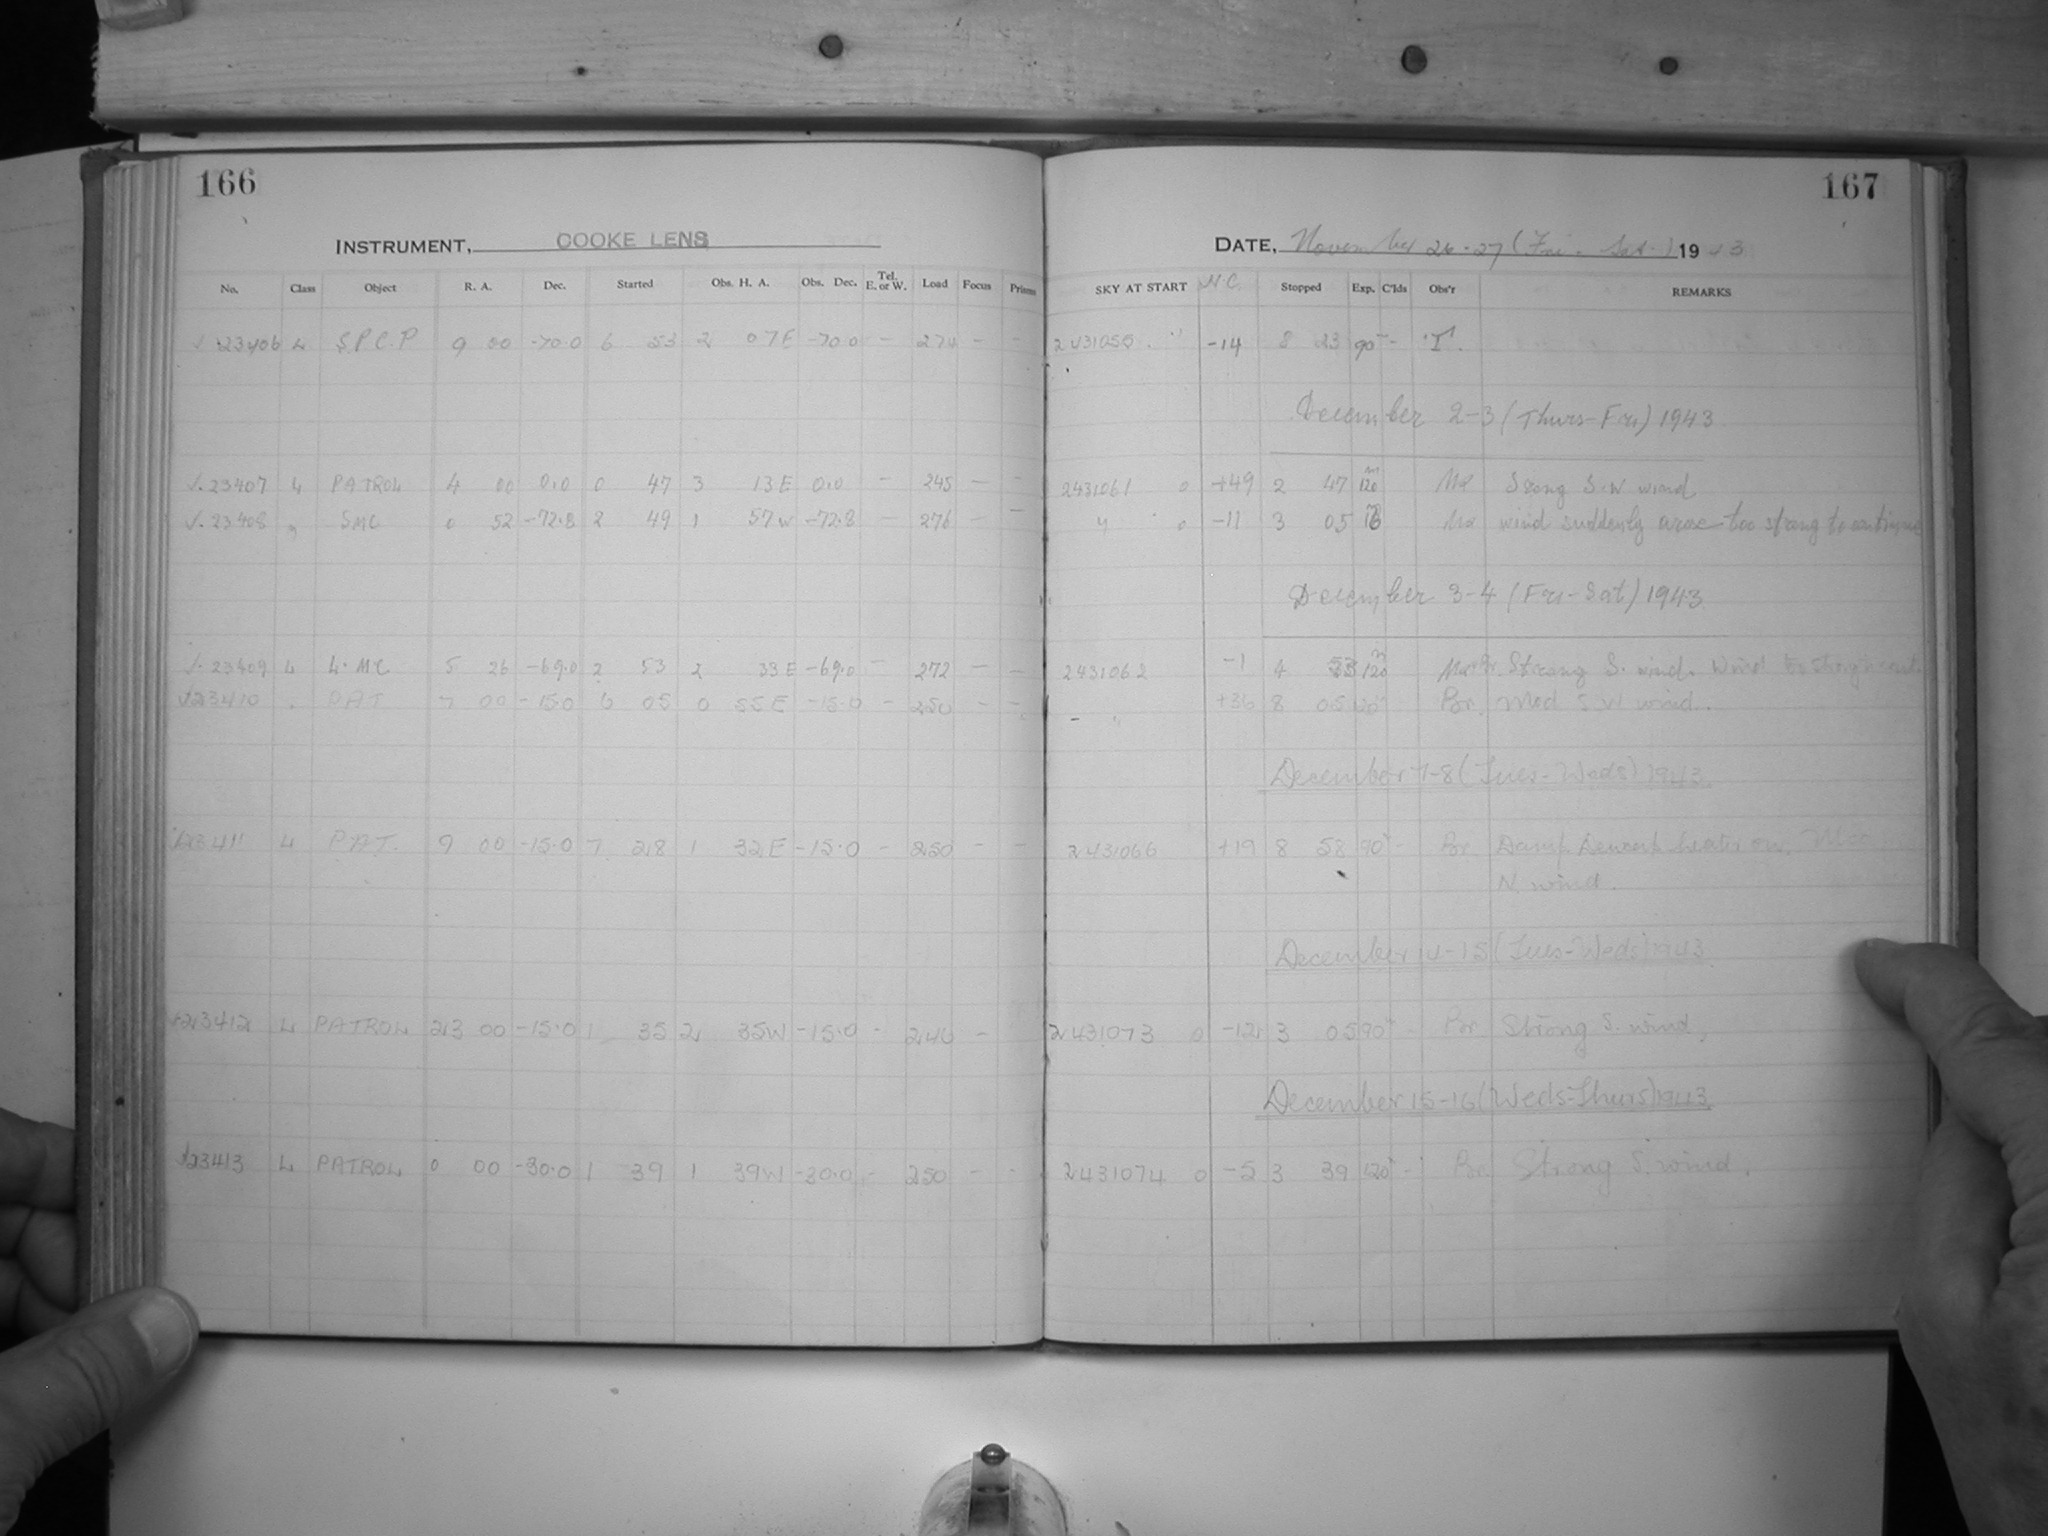 166
INSTRUMENT, COOKE LENS
No. Class Object R. A. Dec. Started Obs. H. A. Obs. Dec. Tel. E. or W. Load Focus Prisms
23406 L S.P.C.P 9 00 -70.0 6 53 2 07E -70.0 - 274 - -
√.23407 L PATROL 4 00 0.0 0 47 3 13E 0.0 - 245 - -
√.23408 " SMC 0 52 -72.8 2 49 1 57W -72.8 - 276 - -
√.23409 L L.MC 5 26 -69.0 2 53 2 33E -69.0 - 272 - -
√23410 PAT 7 00 -15.0 6 05 0 55E -15.0 - 250 - -
√23411 L PAT. 9 00 -15.0 7 28 1 32E -15.0 - 250 - -
√23412 L PATROL 23 00 -15.0 1 35 2 35W -15.0 - 246 -
√23413 L PATROL 0 00 -30.0 1 39 1 39W -30.0 - 250 - -
167
DATE, November 26-27 (Fri. - Sat.) 1943
SKY AT START N.C. Stopped Exp. C'lds Obs'r REMARKS
-14 8 23 90 T.
December 2-3 (Thurs-Fri) 1943
2431061 0 +49 2 47 120 Ma Strong S.W wind
" 0 -11 3 05 16 Ma wind suddenly arose too strong to continue
December 3-4 (Fri-Sat) 1943
2431062 -1 4 53 120 Strong S. wind. Wind
" +36 8 05 120 Br. Mod S.W wind.
December 7-8 (Tues-Weds) 1943.
2431066 +19 8 58 90 - Br. Damp. Dewcap heater on.
N. wind.
December 14-15 (Tues-Weds) 1943
2431073 0 -12 3 05 90 - Br. Strong S. wind.
December 15-16 (Weds-Thurs) 1943
2431074 0 -5 3 39 120 - Br. Strong S. wind.